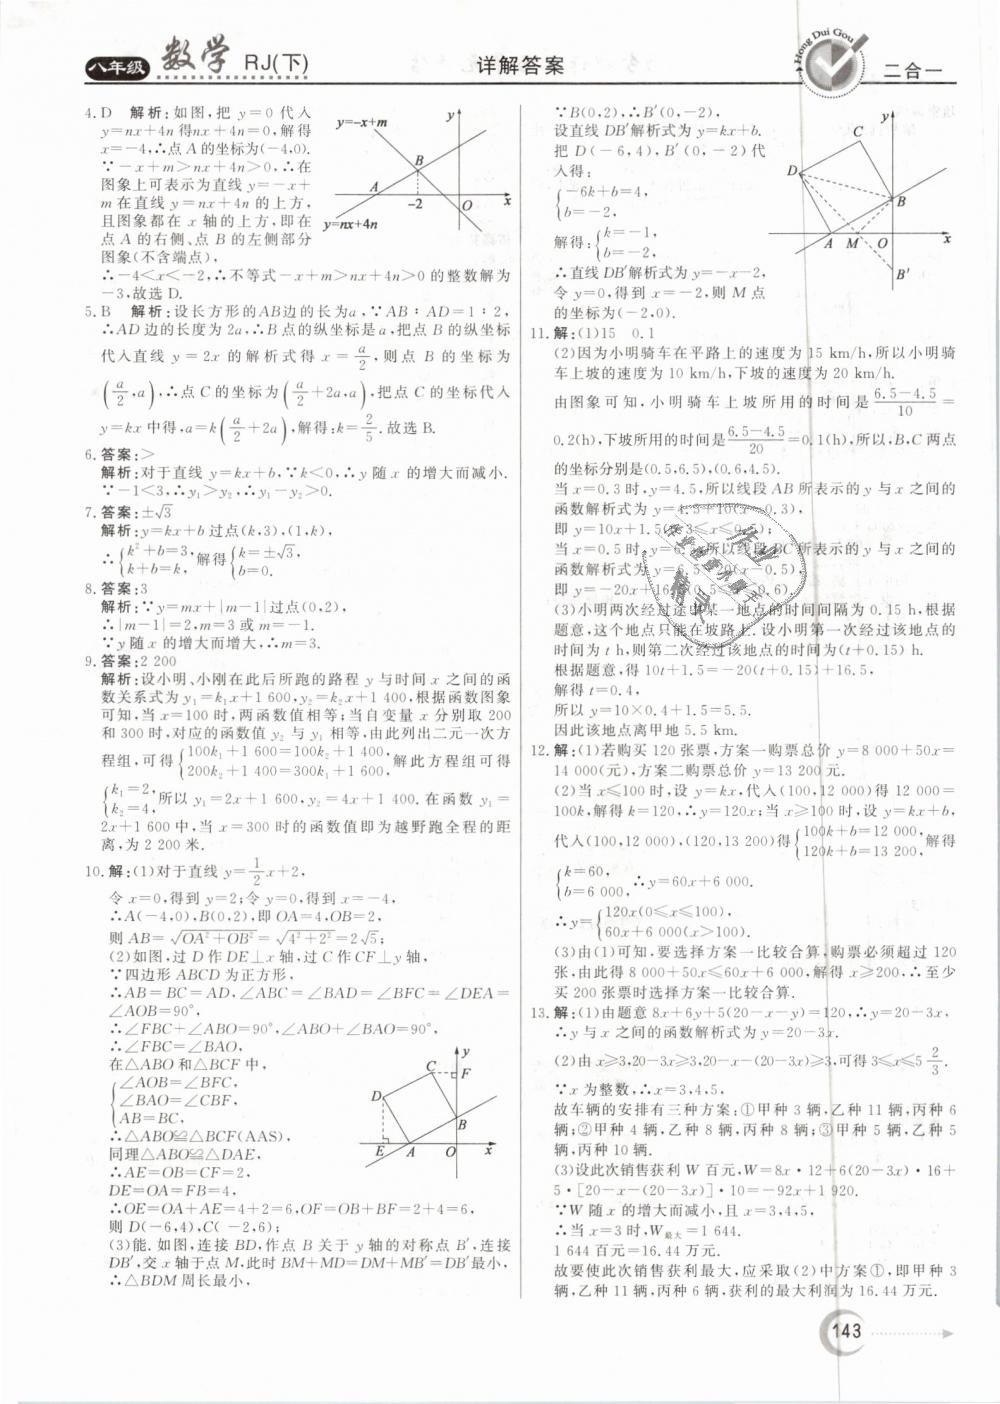 八年级 数学 RJ(下)
详解答案
Hong Dui Gou
二合一
4. D 解析:如图,把 y=0 代入
y=nx+4n 得nx+4n=0,解得
x=-4,∴点 A 的坐标为(-4,0).
∵-x+m>nx+4n>0,∴在
图象上可表示为直线 y=-x+
m 在直线 y=nx+4n 的上方,
且图象都在 x 轴的上方,即在
点 A 的右侧、点 B 的左侧部分
图象(不含端点),
y=-x+m
y
B
A
-2
O
x
y=nx+4n
∴-4<x<-2,∴不等式-x+m>nx+4n>0 的整数解为
-3,故选 D.
5. B 解析:设长方形的AB边的长为a,∵AB∶AD=1∶2,
∴AD 边的长度为 2a,∴B 点的纵坐标是 a,把点 B 的纵坐标
代入直线 y=2x 的解析式得 x=a/2,则点 B 的坐标为
(a/2,a),∴点 C 的坐标为(a/2+2a,a),把点 C 的坐标代入
y=kx 中得,a=k(a/2+2a),解得:k=2/5.故选 B.
6. 答案:>
解析:对于直线 y=kx+b,∵k<0,∴y 随 x 的增大而减小.
∵-1<3,∴y₁>y₂,∴y₁-y₂>0.
7. 答案:±√3
解析:y=kx+b 过点(k,3),(1,k),
∴{k²+b=3, k+b=k, 解得{k=±√3, b=0.
8. 答案:3
解析:∵y=mx+|m-1|过点(0,2),
∴|m-1|=2,m=3 或 m=-1.
∵y 随 x 的增大而增大,∴m=3.
9. 答案:2 200
解析:设小明、小刚在此后所跑的路程 y 与时间 x 之间的函
数关系式为 y₁=k₁x+1 600,y₂=k₂x+1 400,根据函数图象
可知,当 x=100 时,两函数值相等;当自变量 x 分别取 200
和 300 时,对应的函数值 y₂ 与 y₁ 相等,由此列出二元一次方
程组,可得{100k₁+1 600=100k₂+1 400, 200k₂+1 400=300k₁+1 600, 解此方程组可得
{k₁=2, k₂=4, 所以 y₁=2x+1 600,y₂=4x+1 400. 在函数 y₁=
2x+1 600 中,当 x=300 时的函数值即为越野跑全程的距
离,为 2 200 米.
10. 解:(1)对于直线 y=1/2x+2,
令 x=0,得到 y=2;令 y=0,得到 x=-4,
∴A(-4,0),B(0,2),即 OA=4,OB=2,
则 AB=√(OA²+OB²)=√(4²+2²)=2√5;
(2)如图,过 D 作 DE⊥x 轴,过 C 作 CF⊥y 轴,
∵四边形 ABCD 为正方形,
∴AB=BC=AD,∠ABC=∠BAD=∠BFC=∠DEA=
∠AOB=90°,
∴∠FBC+∠ABO=90°,∠ABO+∠BAO=90°,
∴∠FBC=∠BAO,
在△ABO 和△BCF 中,
{∠AOB=∠BFC,
∠BAO=∠CBF,
AB=BC,
∴△ABO≌△BCF(AAS),
同理△ABO≌△DAE,
∴AE=OB=CF=2,
DE=OA=FB=4,
y
C
F
D
B
E
A
O
x
∴OE=OA+AE=4+2=6,OF=OB+BF=2+4=6,
则 D(-6,4),C(-2,6);
(3)能. 如图,连接 BD,作点 B 关于 y 轴的对称点 B′,连接
DB′,交 x 轴于点 M,此时 BM+MD=DM+MB′=DB′最小,
∴△BDM 周长最小,
∵B(0,2),∴B′(0,-2),
设直线 DB′解析式为 y=kx+b.
把 D(-6,4),B′(0,-2)代
入得:
{-6k+b=4,
b=-2,
解得:{k=-1, b=-2,
∴直线 DB′解析式为 y=-x-2,
令 y=0,得到 x=-2,则 M 点
的坐标为(-2,0).
y
C
D
B
A
M
O
x
B′
11. 解:(1)15 0.1
(2)因为小明骑车在平路上的速度为 15 km/h,所以小明骑
车上坡的速度为 10 km/h,下坡的速度为 20 km/h.
由图象可知,小明骑车上坡所用的时间是 (6.5-4.5)/10 =
0.2(h),下坡所用的时间是 (6.5-4.5)/20 =0.1(h),所以,B,C 两点
的坐标分别是(0.5,6.5),(0.6,4.5).
当 x=0.3 时,y=4.5,所以线段 AB 所表示的 y 与 x 之间的
函数解析式为 y=4.5+10(x-0.3),
即 y=10x+1.5(0.3≤x≤0.5);
当 x=0.5 时,y=6.5,所以线段 BC 所表示的 y 与 x 之间的
函数解析式为 y=6.5-20(x-0.5),
即 y=-20x+16.5(0.5≤x≤0.6).
(3)小明两次经过途中某一地点的时间间隔为 0.15 h,根据
题意,这个地点只能在坡路上. 设小明第一次经过该地点的
时间为 t h,则第二次经过该地点的时间为(t+0.15) h.
根据题意,得 10t+1.5=-20(t+0.15)+16.5,
解得 t=0.4,
所以 y=10×0.4+1.5=5.5.
因此该地点离甲地 5.5 km.
12. 解:(1)若购买 120 张票,方案一购票总价 y=8 000+50x=
14 000(元),方案二购票总价 y=13 200 元.
(2)当 x≤100 时,设 y=kx,代入(100,12 000)得 12 000=
100k,解得 k=120,∴y=120x;当 x≥100 时,设 y=kx+b,
代入(100,12 000),(120,13 200)得{100k+b=12 000, 120k+b=13 200, 解得
{k=60, b=6 000, ∴y=60x+6 000.
∴y={120x(0≤x≤100), 60x+6 000(x>100).
(3)由(1)可知,要选择方案一比较合算,购票必须超过 120
张,由此得 8 000+50x≤60x+6 000,解得 x≥200,∴至少
买 200 张票时选择方案一比较合算.
13. 解:(1)由题意 8x+6y+5(20-x-y)=120,∴y=20-3x,
∴y 与 x 之间的函数解析式为 y=20-3x.
(2)由 x≥3,20-3x≥3,20-x-(20-3x)≥3,可得 3≤x≤5 2/3.
∵x 为整数,∴x=3,4,5,
故车辆的安排有三种方案:①甲种 3 辆,乙种 11 辆,丙种 6
辆;②甲种 4 辆,乙种 8 辆,丙种 8 辆;③甲种 5 辆,乙种 5
辆,丙种 10 辆.
(3)设此次销售获利 W 百元,W=8x·12+6(20-3x)·16+
5·[20-x-(20-3x)]·10=-92x+1 920.
∵W 随 x 的增大而减小,且 x=3,4,5,
∴当 x=3 时,W最大=1 644.
1 644 百元=16.44 万元.
故要使此次销售获利最大,应采取(2)中方案①,即甲种 3
辆,乙种 11 辆,丙种 6 辆,获利的最大利润为 16.44 万元.
143